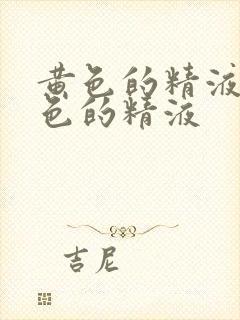 黄色的精液
色的精液
吉尼